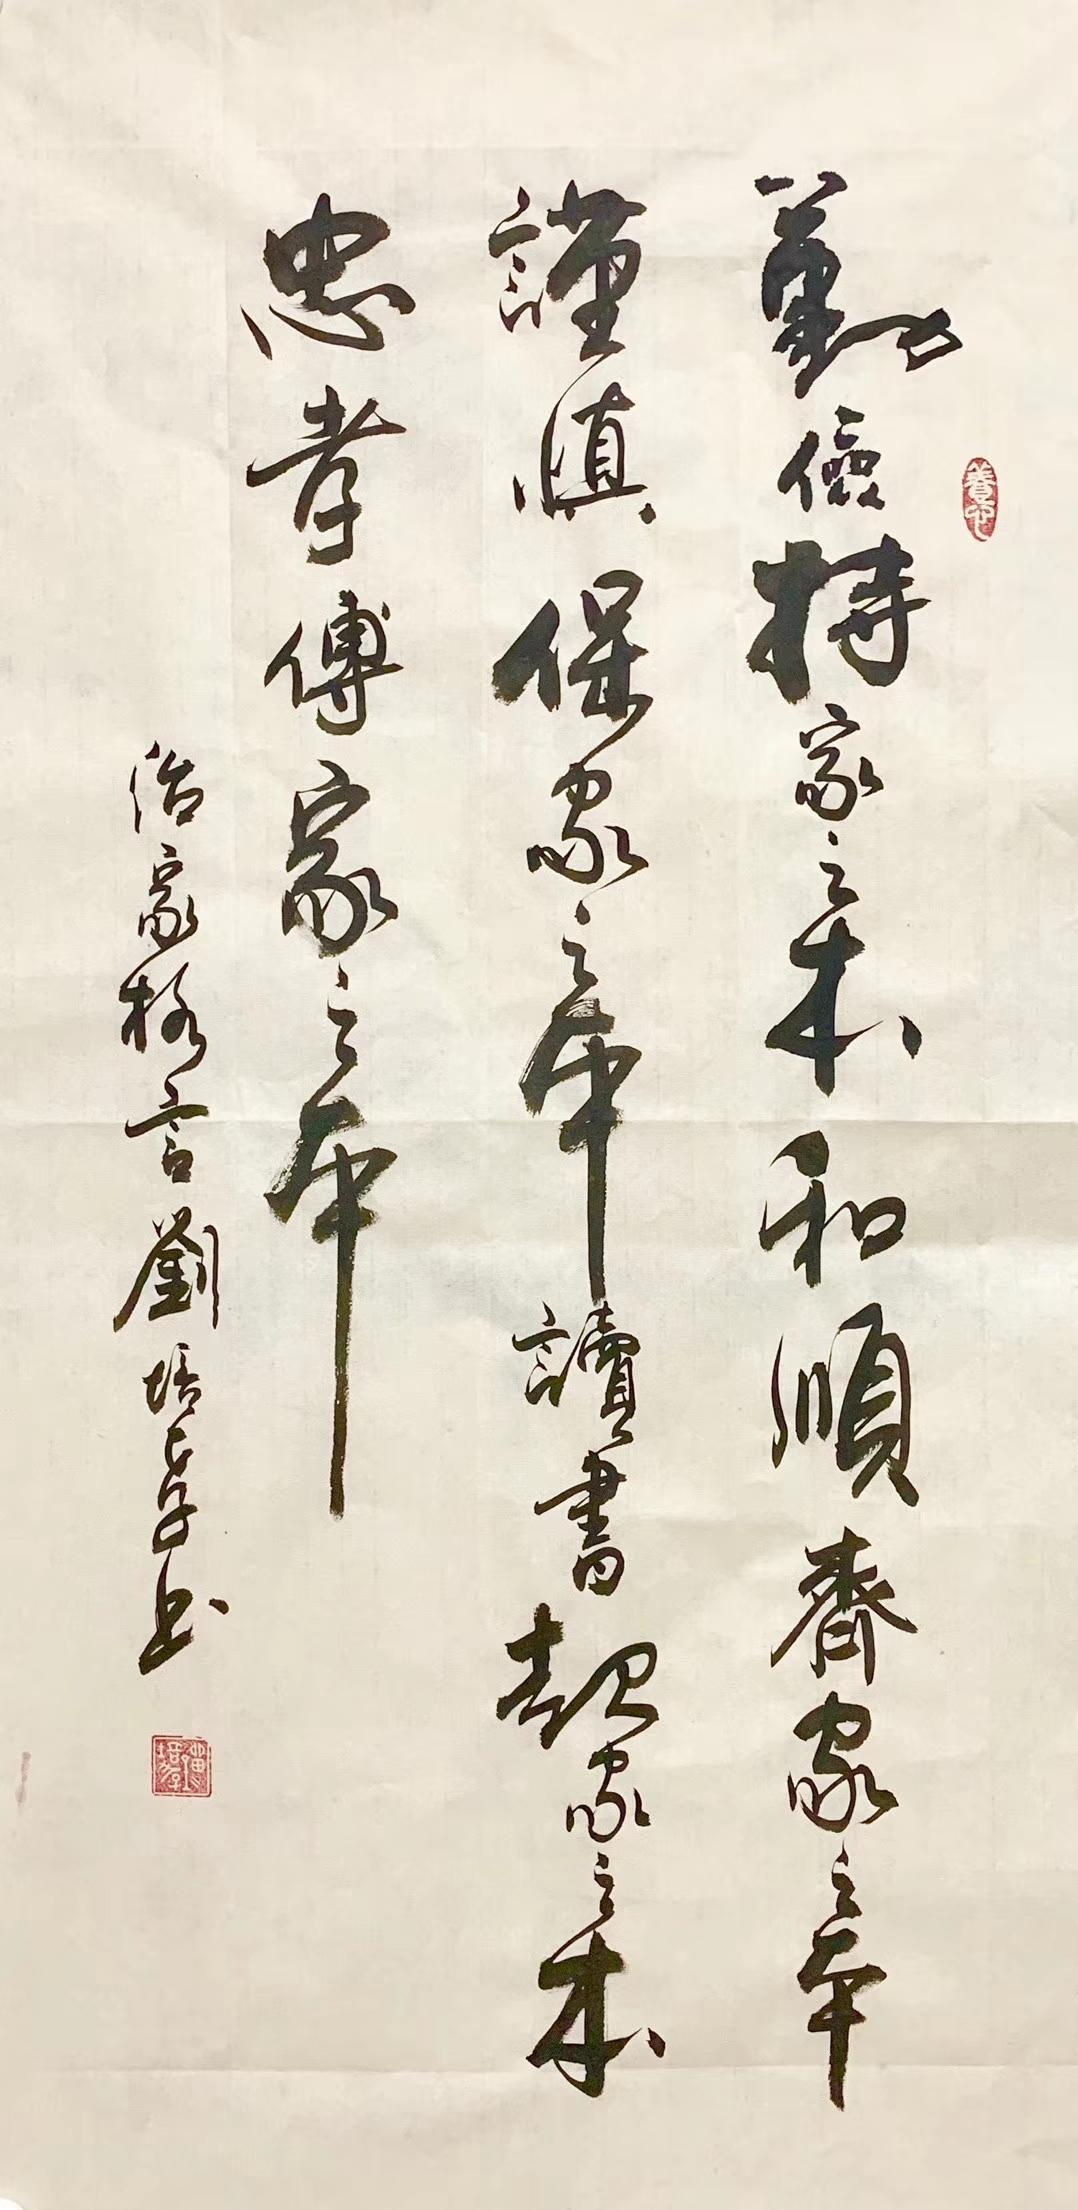 勤儉持家之本和順齊家之本
謹慎保家之本讀書起家之本
忠孝傳家之本
治家格言劉培孝书